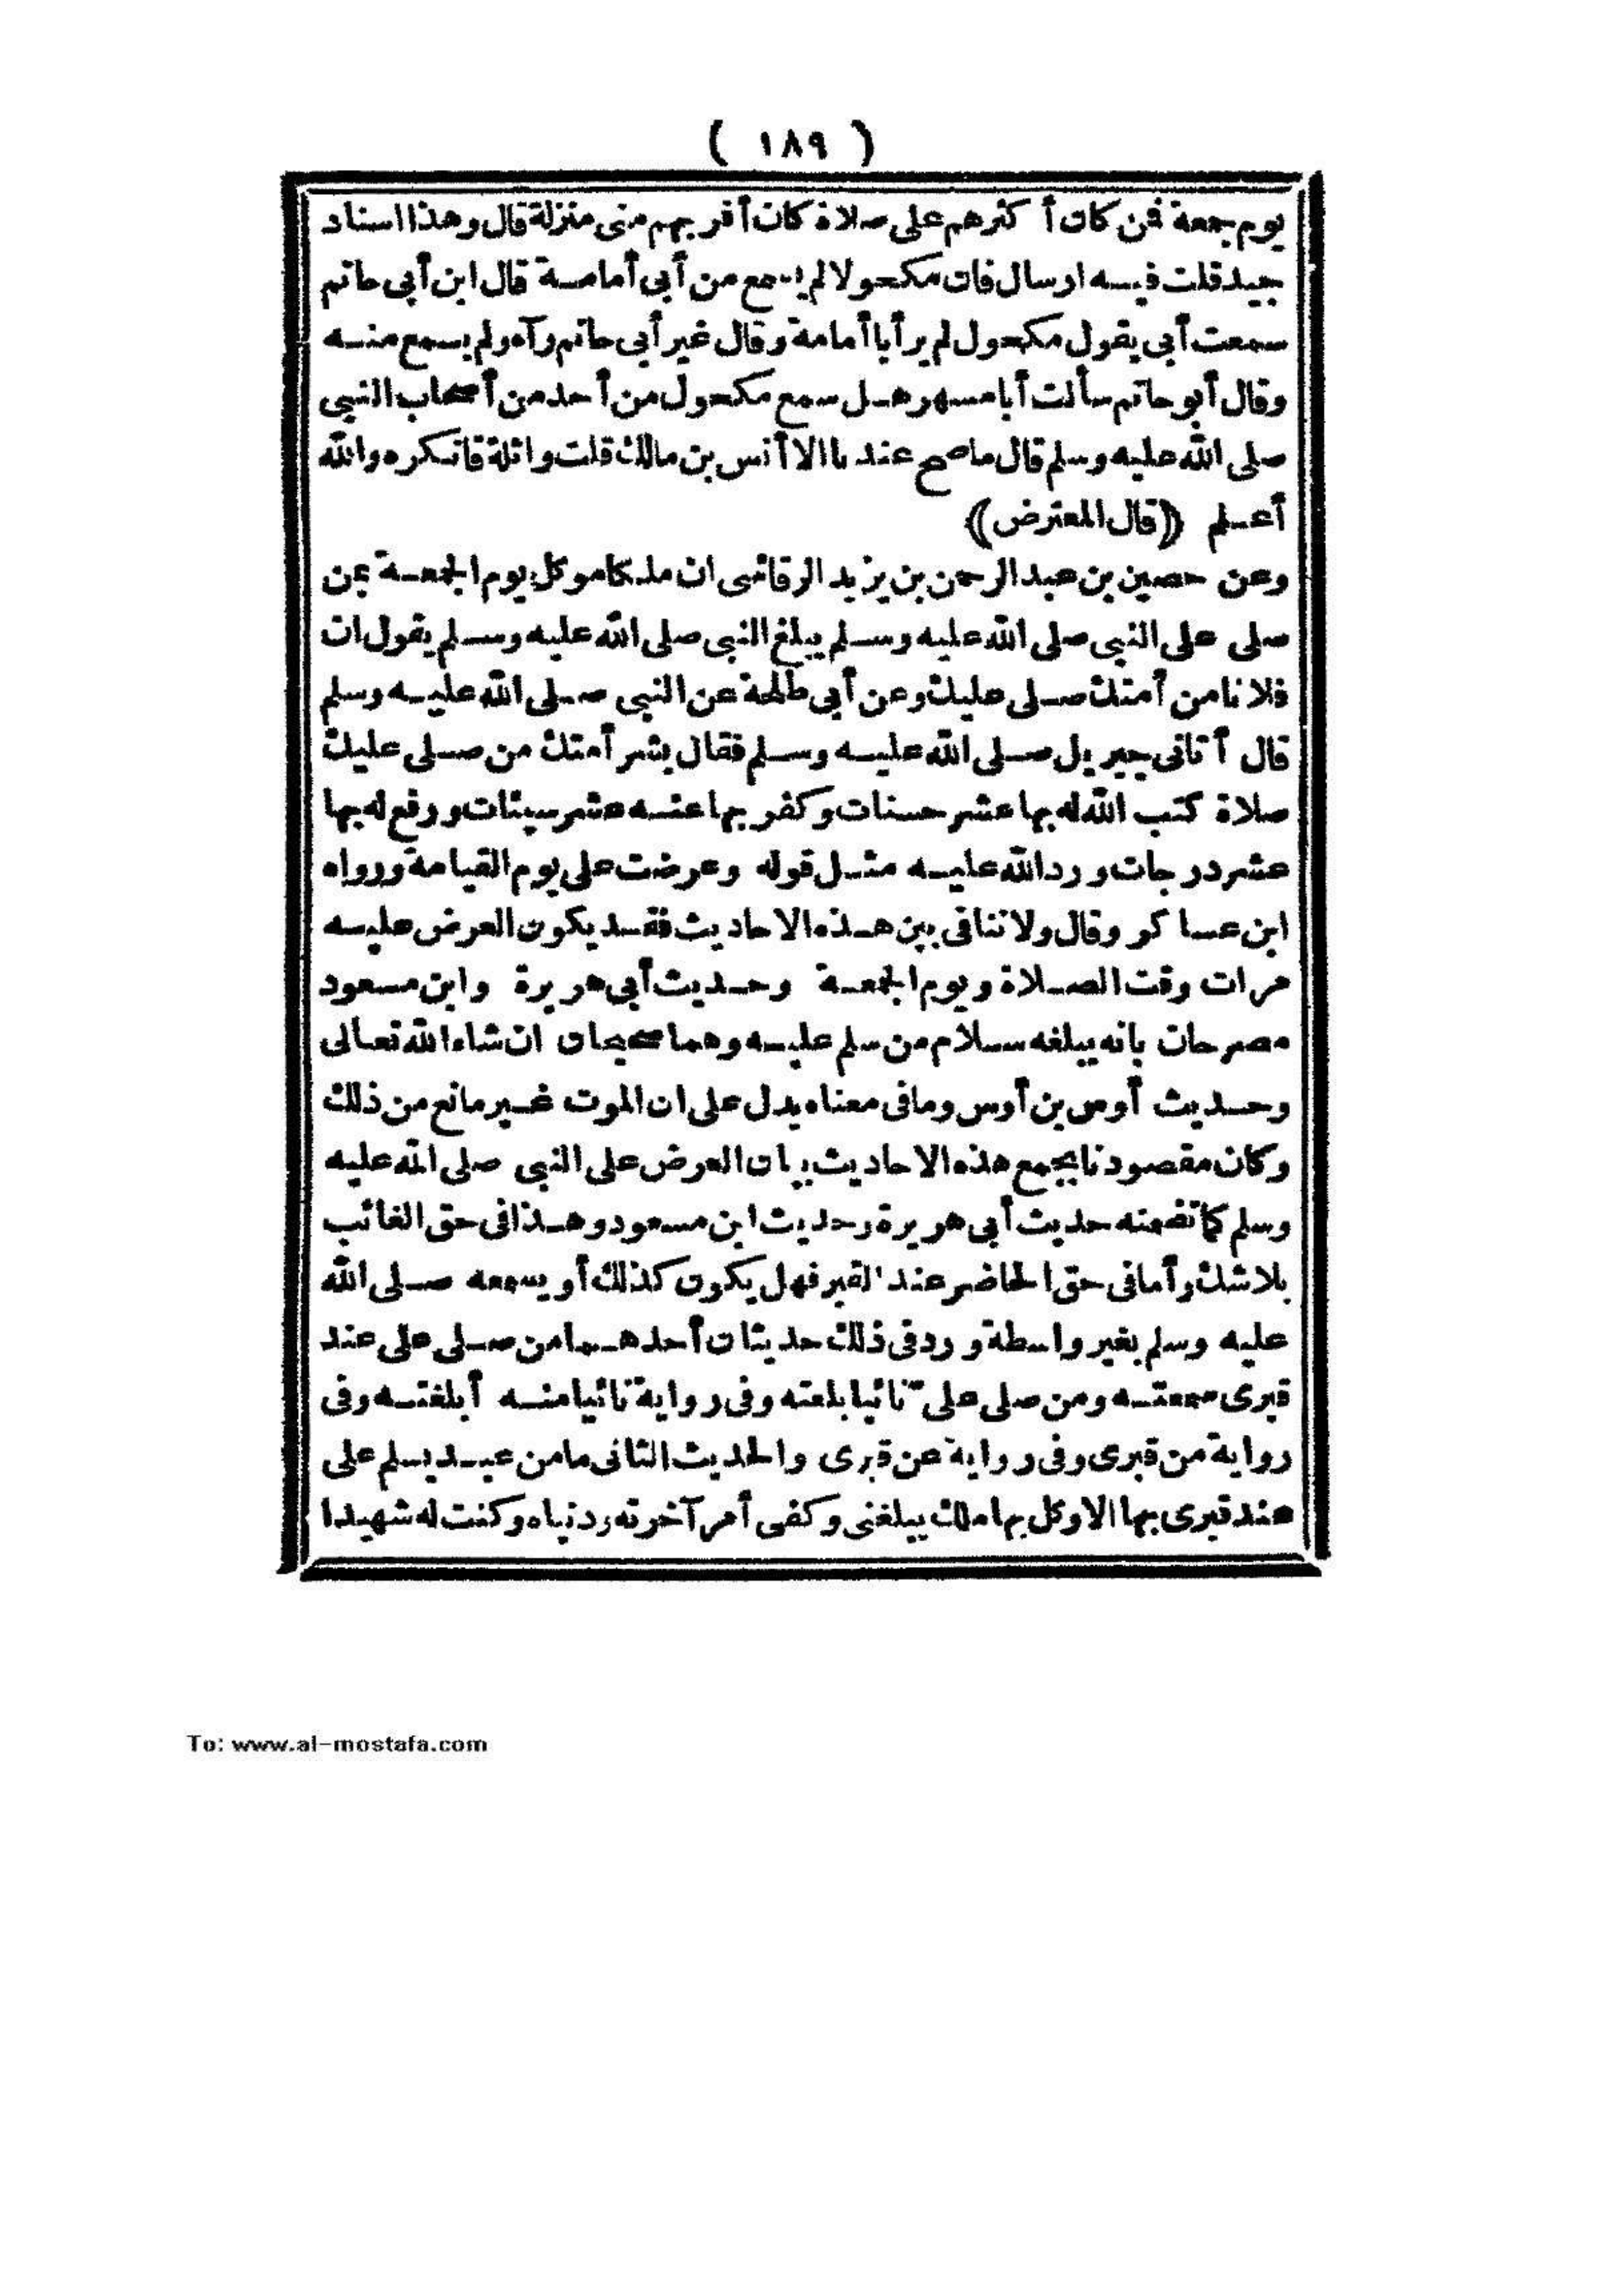 ( ١٨٩ )
يوم جمعة فمن كان أكثرهم على صلاة كان أقربهم منى منزلة قال وهذا اسناد
جيد قلت فيه ارسال فان مكحولا لم يسمع من أبى أمامة قال ابن أبى حاتم
سمعت أبى يقول مكحول لم ير أبا أمامة وقال غير أبى حاتم رآه ولم يسمع منه
وقال أبو حاتم سألت أبا مسهر هل سمع مكحول من أحد من أصحاب النبى
صلى الله عليه وسلم قال ما صح عندنا الا أنس بن مالك قلت واثلة فانكره والله
أعلم ((قال المعترض))
وعن حصين بن عبد الرحمن بن يزيد الرقاشى ان ملكا موكل يوم الجمعة بمن
صلى على النبى صلى الله عليه وسلم يبلغ النبى صلى الله عليه وسلم يقول ان
فلانا من أمتك صلى عليك وعن أبى طلحة عن النبى صلى الله عليه وسلم
قال أتانى جبريل صلى الله عليه وسلم فقال بشر أمتك من صلى عليك
صلاة كتب الله له بها عشر حسنات وكفر بها عنه عشر سيئات ورفع له بها
عشر درجات ورد الله عليه مثل قوله وعرضت على يوم القيامة ورواه
ابن عساكر وقال ولا تنافى بين هذه الاحاديث فقد يكون العرض عليه
مرات وقت الصلاة ويوم الجمعة وحديث أبى هريرة وابن مسعود
مصرحان بانه يبلغه سلام من سلم عليه وهما صحيحان ان شاء الله تعالى
وحديث أوس بن أوس وما فى معناه يدل على ان الموت غير مانع من ذلك
وكان مقصودنا بجمع هذه الاحاديث بيان العرض على النبى صلى الله عليه
وسلم كما تضمنه حديث أبى هريرة وحديث ابن مسعود وهذا فى حق الغائب
بلا شك وأما فى حق الحاضر عند القبر فهل يكون كذلك أو يسمعه صلى الله
عليه وسلم بغير واسطة ورد فى ذلك حديثان أحدهما من صلى على عند
قبرى سمعته ومن صلى على نائيا بلغته وفى رواية نائيا منه أبلغته وفى
رواية من قبرى وفى رواية عن قبرى والحديث الثانى ما من عبد يسلم على
عند قبرى بها الا وكل بها ملك يبلغنى وكفى أمر آخرته ودنياه وكنت له شهيدا
To: www.al-mostafa.com